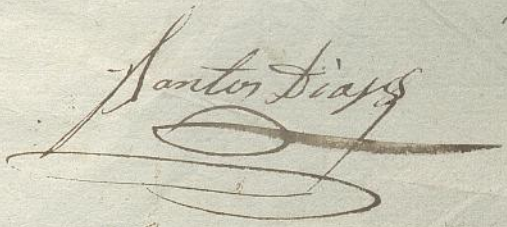 Santos Diaz